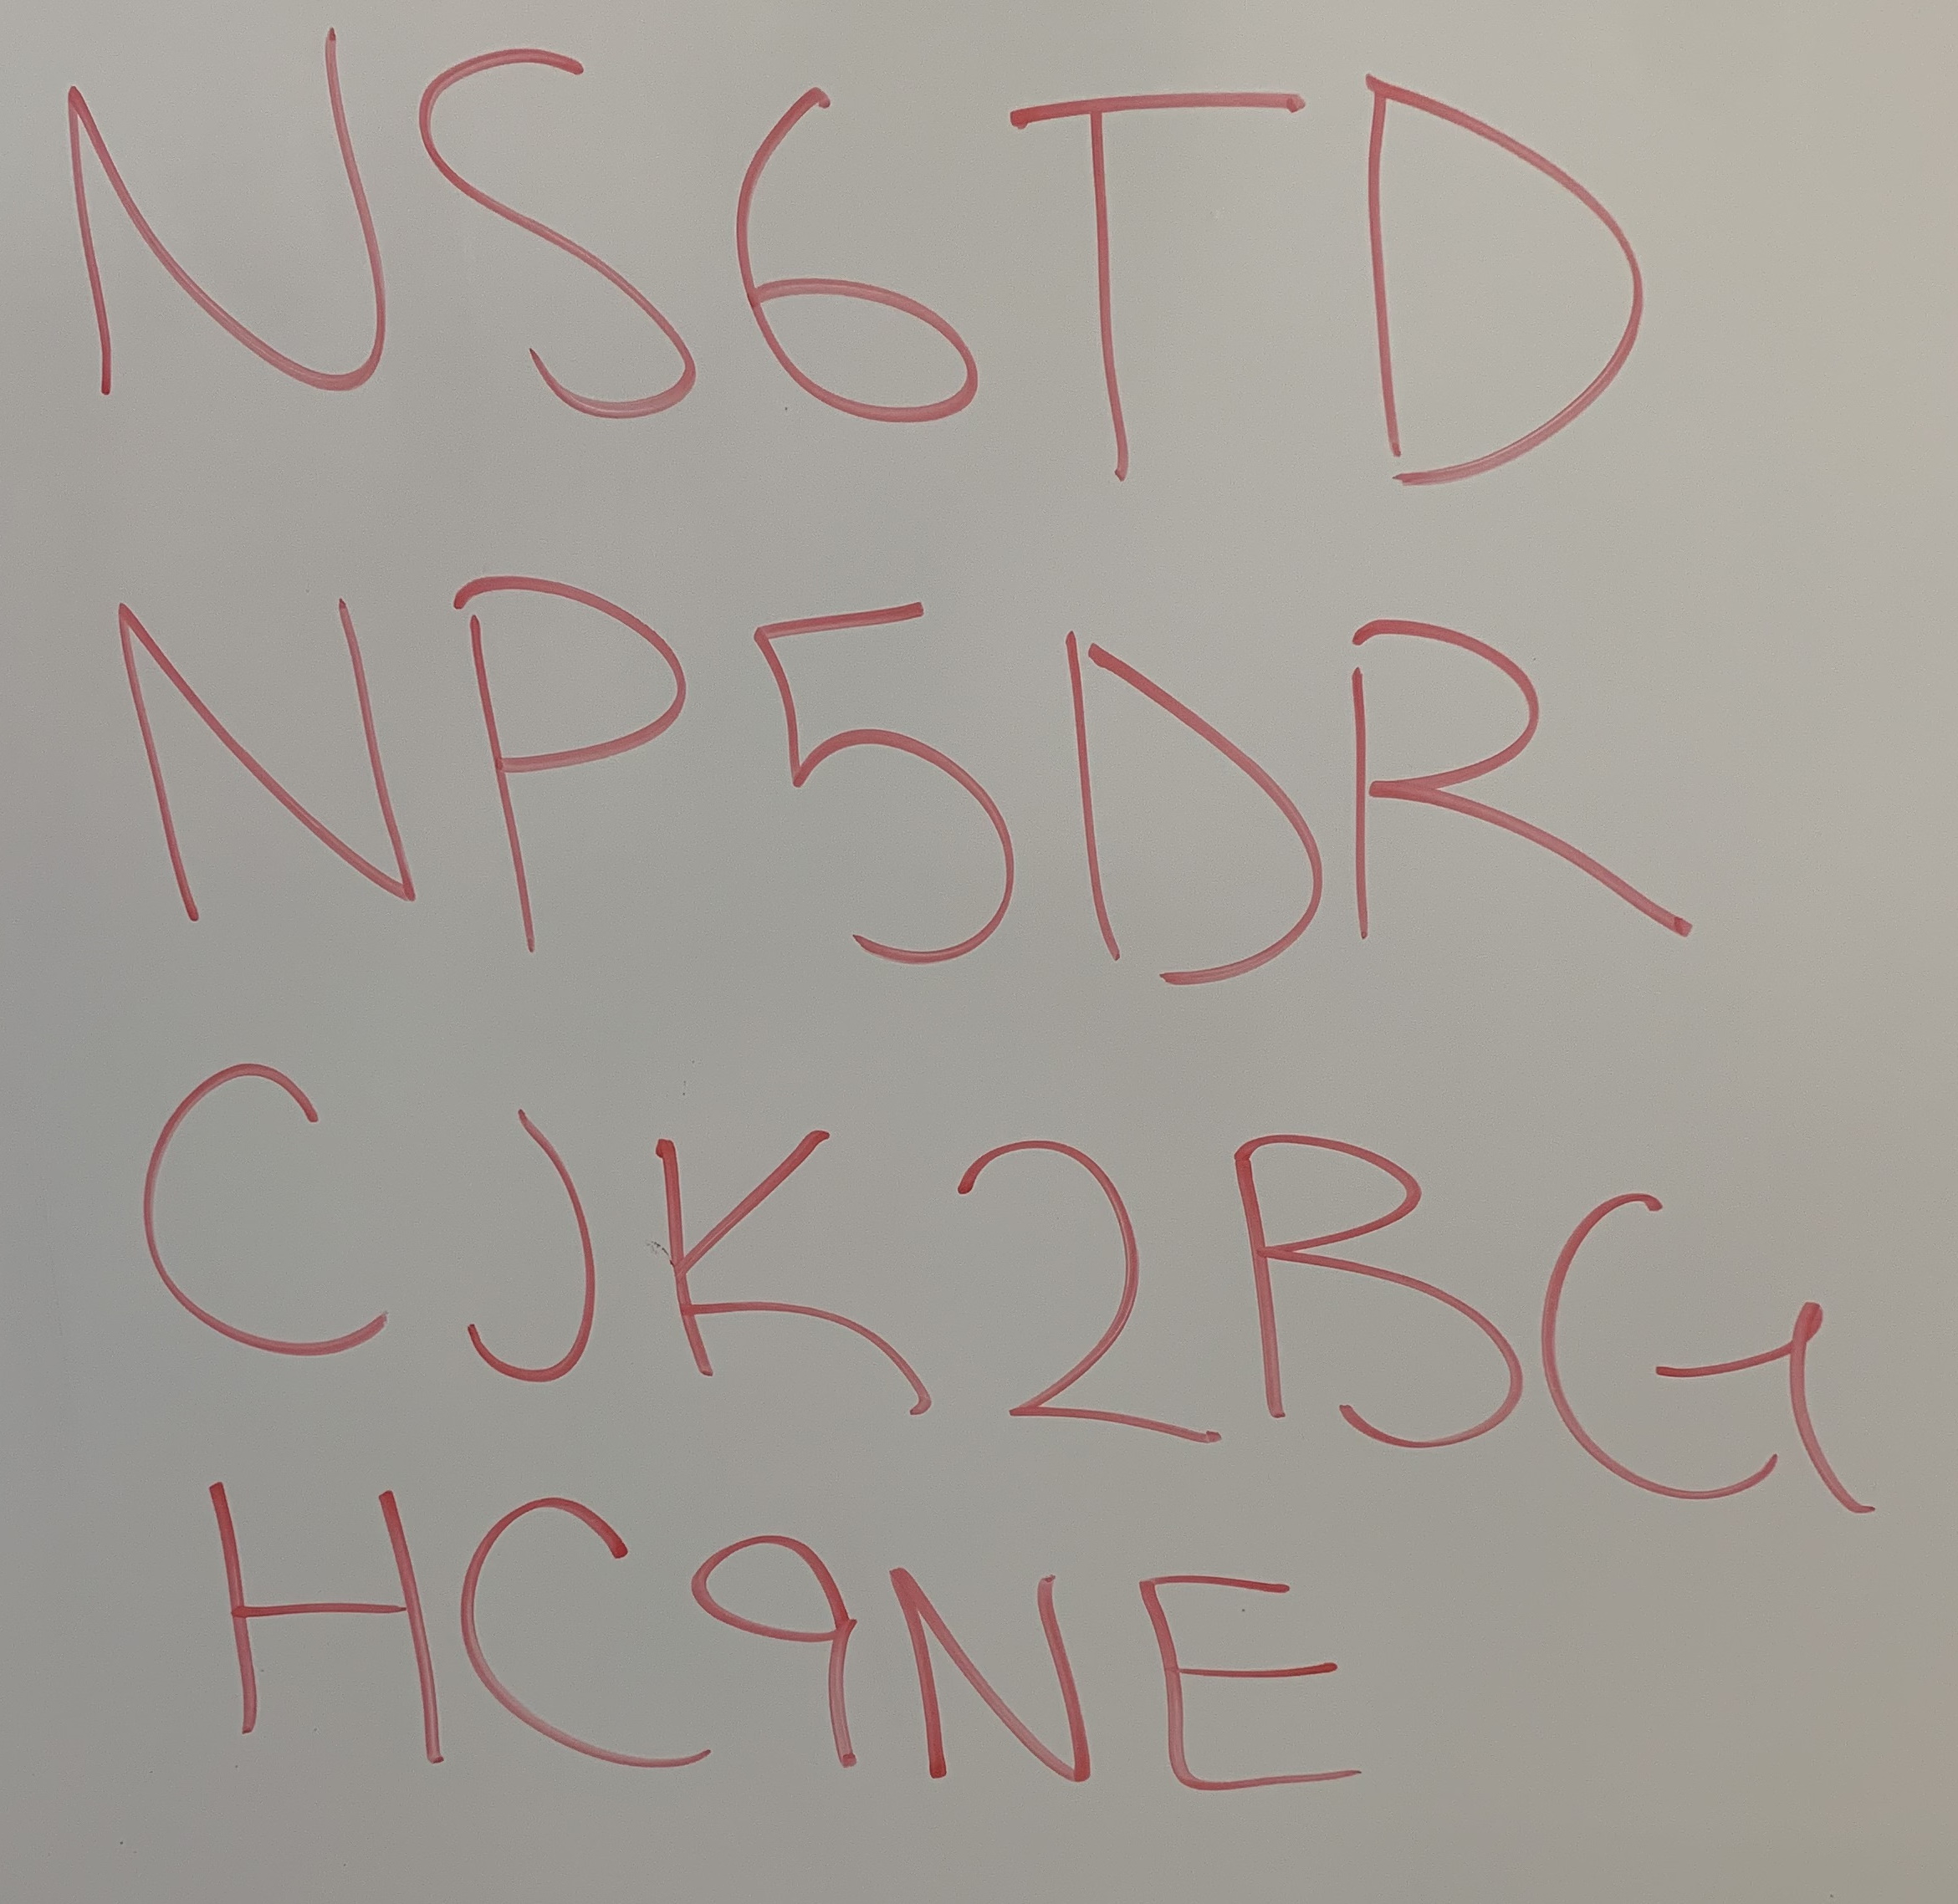 NS6TD
NP5DR
CJK2BG
HC9NE